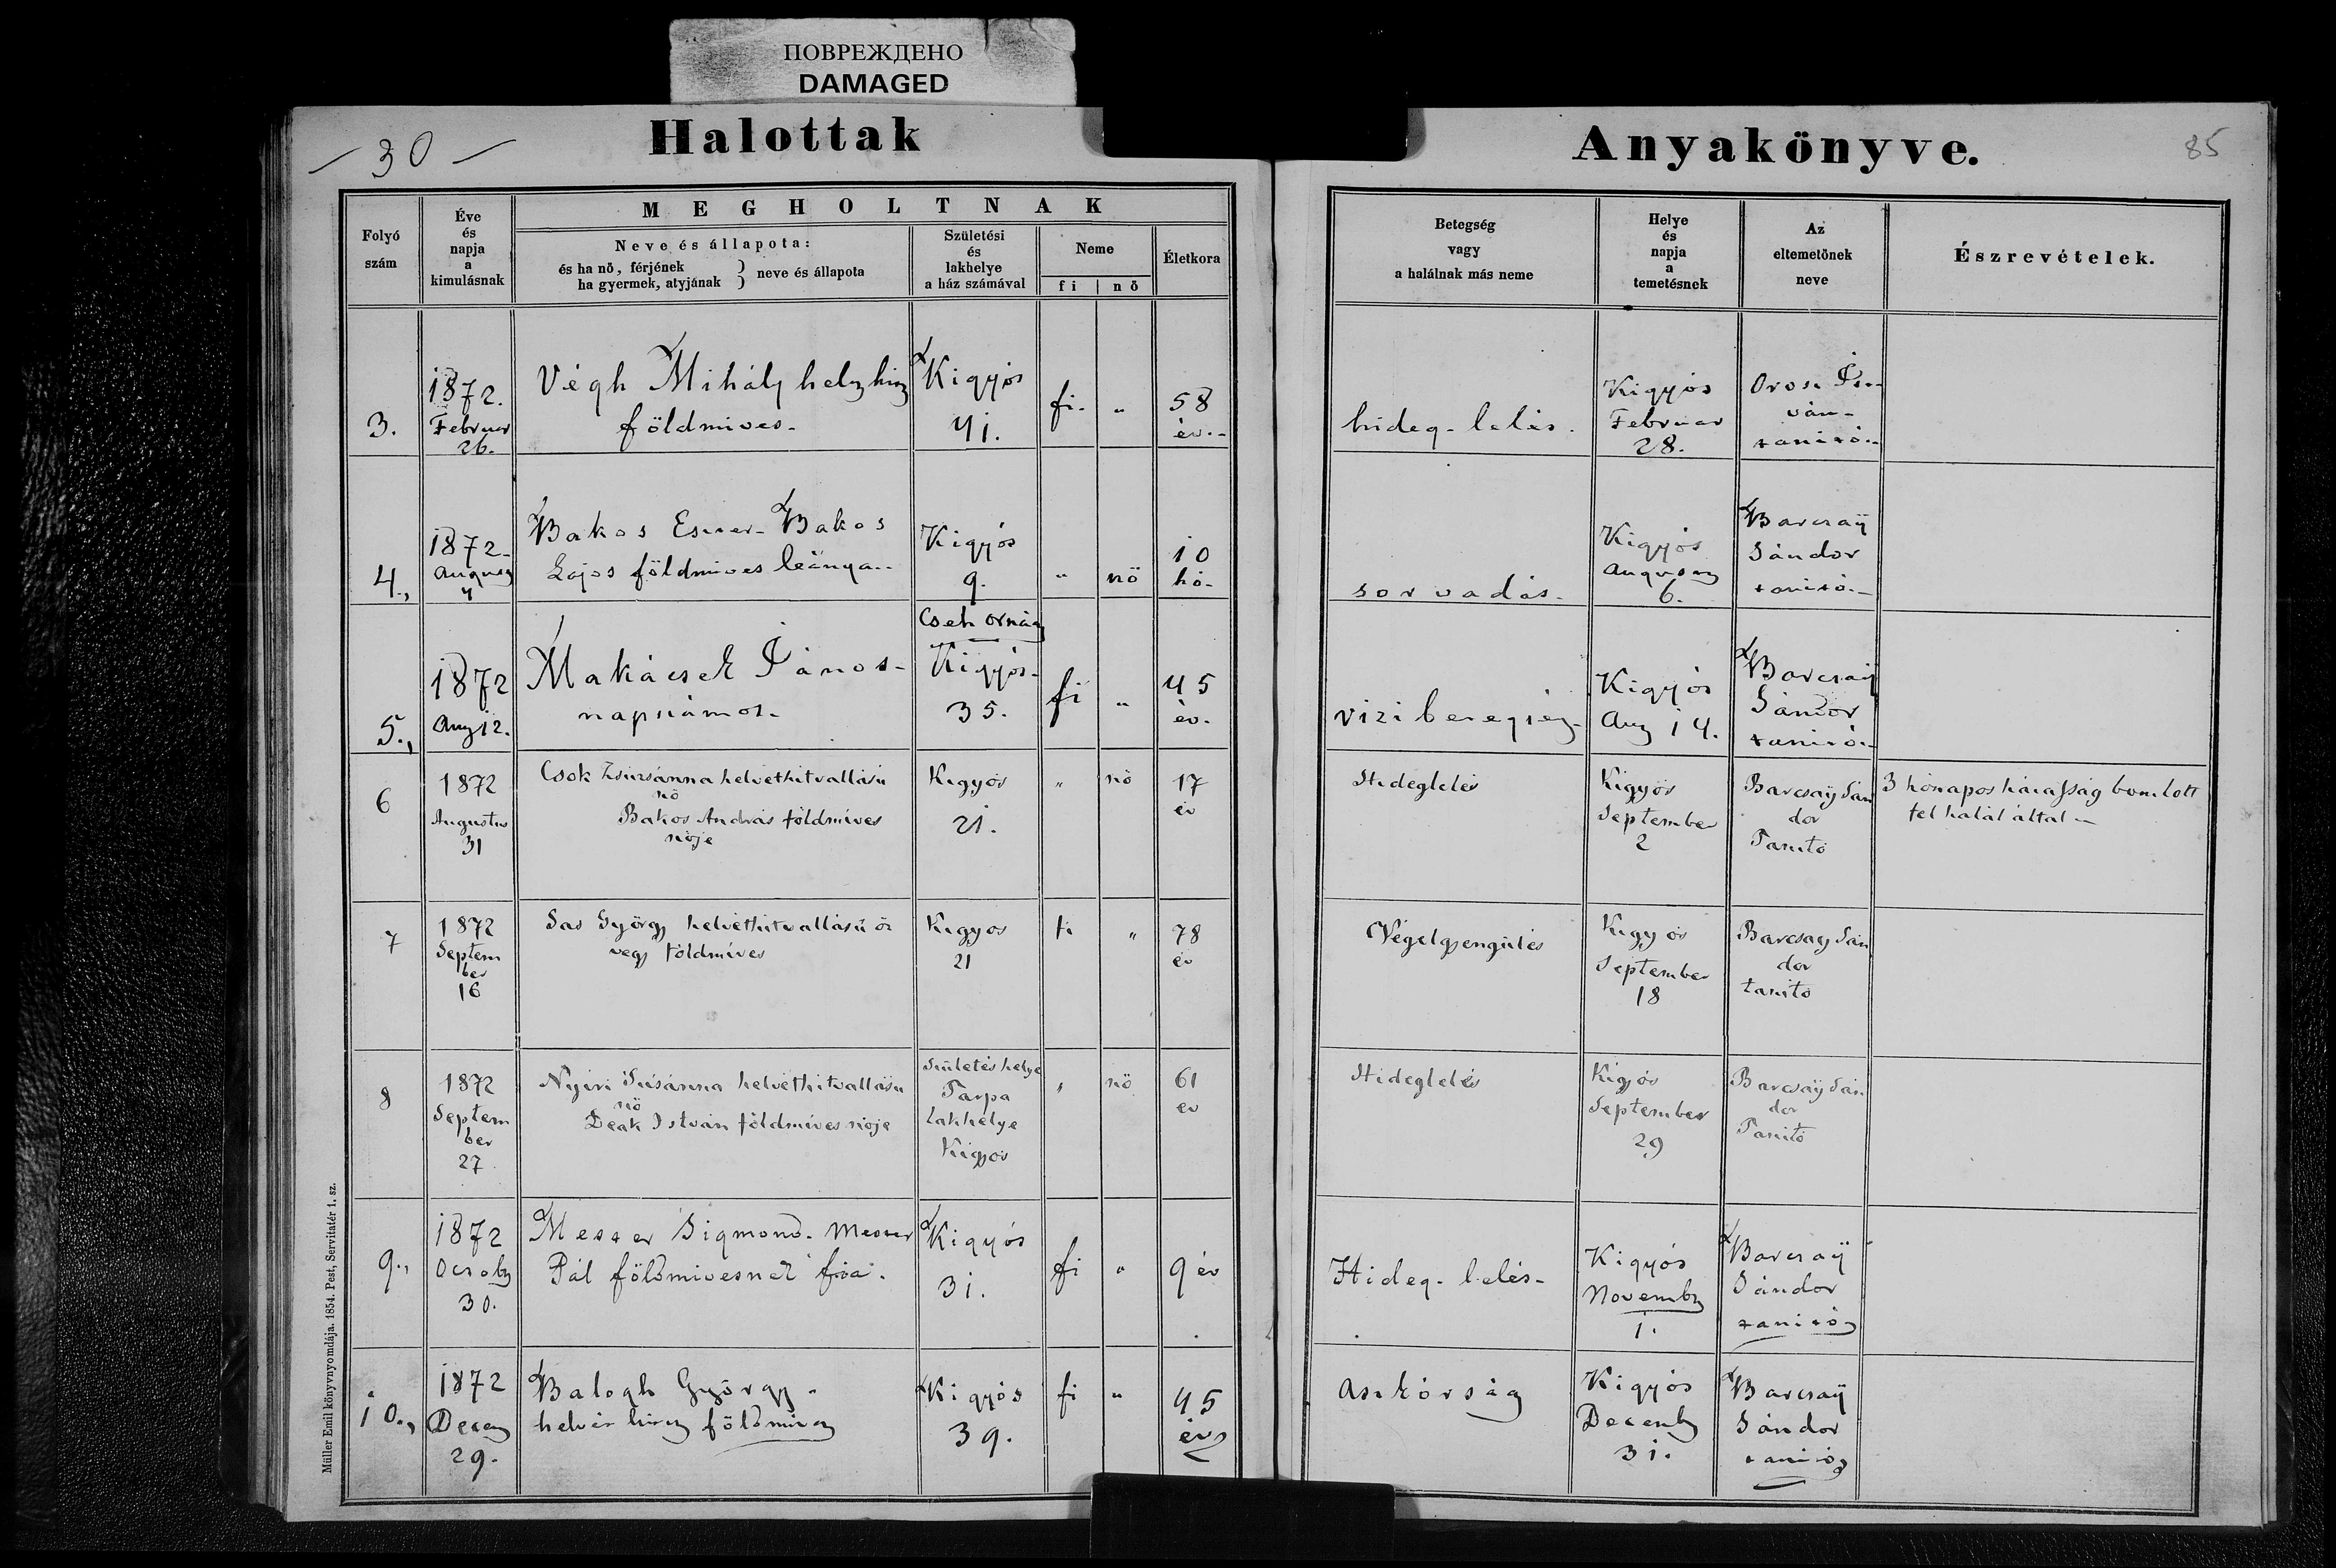 ПОВРЕЖДЕНО
DAMAGED
— 30 —
Halottak
Anyakönyve.
85
Folyó
szám
Éve
és
napja
a
kimulásnak
MEGHOLTNAK
Neve és állapota:
és ha nő, férjének
ha gyermek, atyjának } neve és állapota
Születési
és
lakhelye
a ház számával
Neme
fi | nő
Életkora
Betegség
vagy
a halálnak más neme
Helye
és
napja
a
temetésnek
Az
eltemetőnek
neve
Észrevételek.
3.
1872.
Februar
26.
Végh Mihály
földmives.
Kigyós
41.
fi.
"
58
év.
hideg-lelés.
Kigyós
Februar
28.
Orosz Ist-
ván-
tanitó.
4.,
1872
4
Bakos Eszter. Bakos
Lajos földmives leánya..
Kigyós
9.
"
nö
10
hó.
sorvadás.
Kigyós
6.
Barcsaÿ
Sándor
tanitó.
5.,
1872
Aug 12.
Makácsek János-
napszámos.
Kigyós.
35.
fi
"
45
év.
vizi betegség.
Kigyós
Aug 14.
Barcsaÿ
Sándor
tanitó.
6
1872
Augustus
31
Csok Zsuzsánna helvéthitvallású
nö
Bakos András földmíves
nöje
Kigyós
21.
"
nö
17
év
Hideglelés
Kigyós
September
2
Barcsaÿ Sán
dor
Tanító
3 hónapos házasság bomlott
fel halál által —
7
1872
Septem
ber
16
Sas György helvéthitvallású öz
vegy földmíves
Kigyos
21
fi
"
78
év
Végelgyengülés
Kigyós
September
18
Barcsay Sán
dor
tanító
8
1872
Septem
ber
27
Nyíri Susánna helvéthitvallásu
nö
Deák István földmíves nöje
Születés helye
Tarpa
Lakhelye
Kigyós
"
nö
61
ev
Hideglelés
Kigyós
September
29
Barcsaÿ Sán
dor
Tanító
9.,
1872
30.
Mester Sigmond. Mester
Pál földmivesnek fia.
Kigyós
31.
fi
"
9 év
Hideg-lelés-
Kigyós
Novemb
1.
Barcsaÿ
Sándor
tanitó
10.,
1872
Decem
29.
Balogh György.
földmives
Kigyós
39.
fi
"
45
év
Aszkórság
Kigyós
Decemb
31.
Barcsaÿ
Sándor
tanitó
Müller Emil könyvnyomdája. 1854. Pest, Servitatér 1. sz.